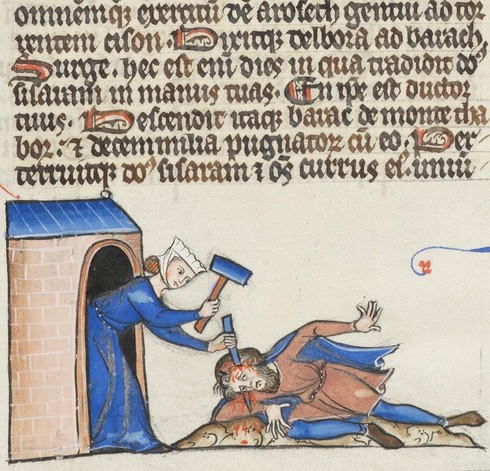 omnemq; exercitū de aroseth gentiū ad tor
rentem cison. Dixitq; delbora ad barach
Surge. hec est eni dies in qua tradidit do⁹
sisaram in manus tuas. En ipse est ductor
tuus. Descendit itaq; barac de monte tha
bor. ⁊ decem milia pugnator cū eo. Per
terruitq; do⁹ sisaram ⁊ os currus ei⁹. uniū